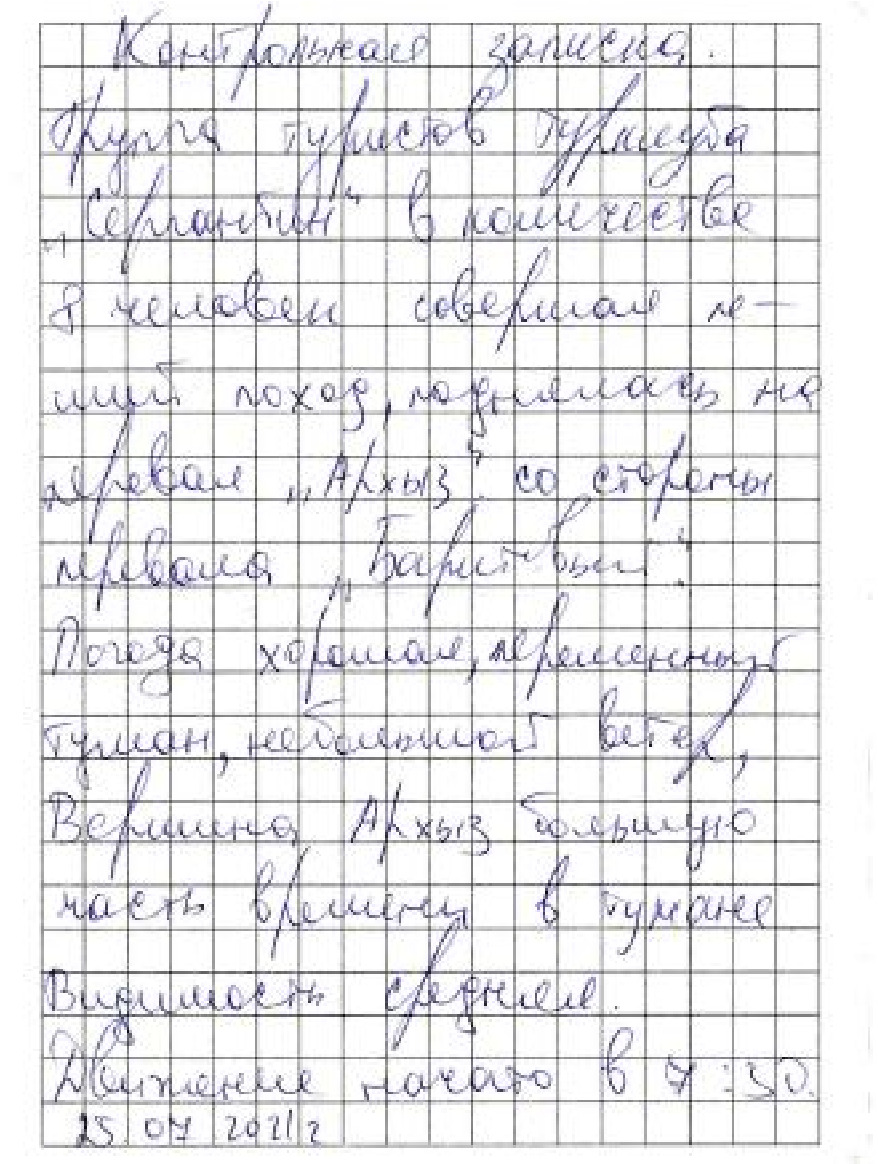 Контрольная записка.
Группа туристов турклуба
„Серпантин" в количестве
8 человек совершая пе-
ший поход, поднялась на
перевал „Архыз". со стороны
перевала „Баритовый".
Погода хорошая, переменный
туман, небольшой ветер,
Вершина Архыз большую
часть времени в тумане
Видимость средняя.
Движение начато в 7:30.
25.07 2021г